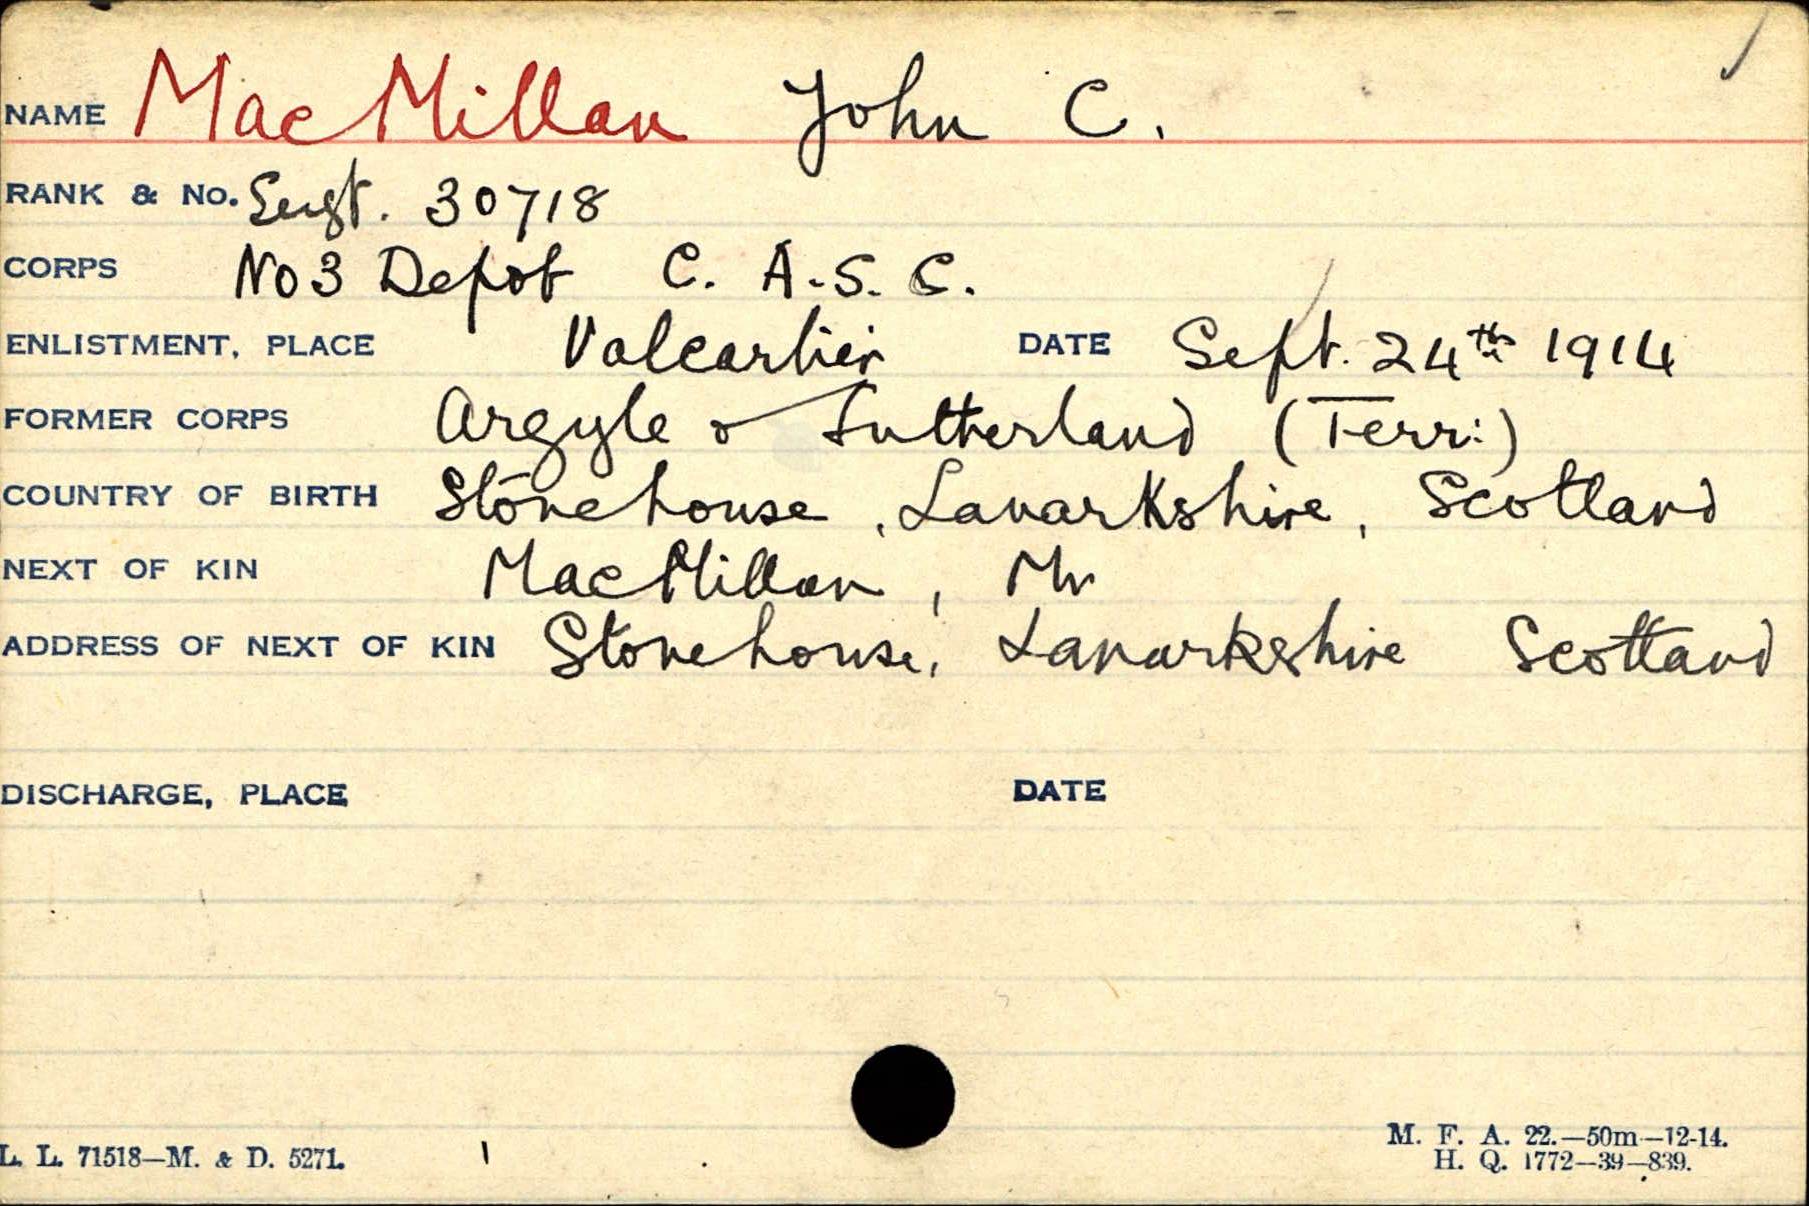 NAME MacMillan John C.
RANK & No. Sergt. 30718
CORPS No 3 Depot C. A. S. C.
ENLISTMENT, PLACE Valcartier DATE Sept. 24th 1914
FORMER CORPS Argyle & Sutherland (Terr:)
COUNTRY OF BIRTH Stonehouse, Lanarkshire, Scotland
NEXT OF KIN MacMillan, Mr
ADDRESS OF NEXT OF KIN Stonehouse, Lanarkshire Scotland
DISCHARGE, PLACE DATE
L. L. 71518—M. & D. 5271.
M. F. A. 22.—50m—12-14.
H. Q. 1772—39—839.